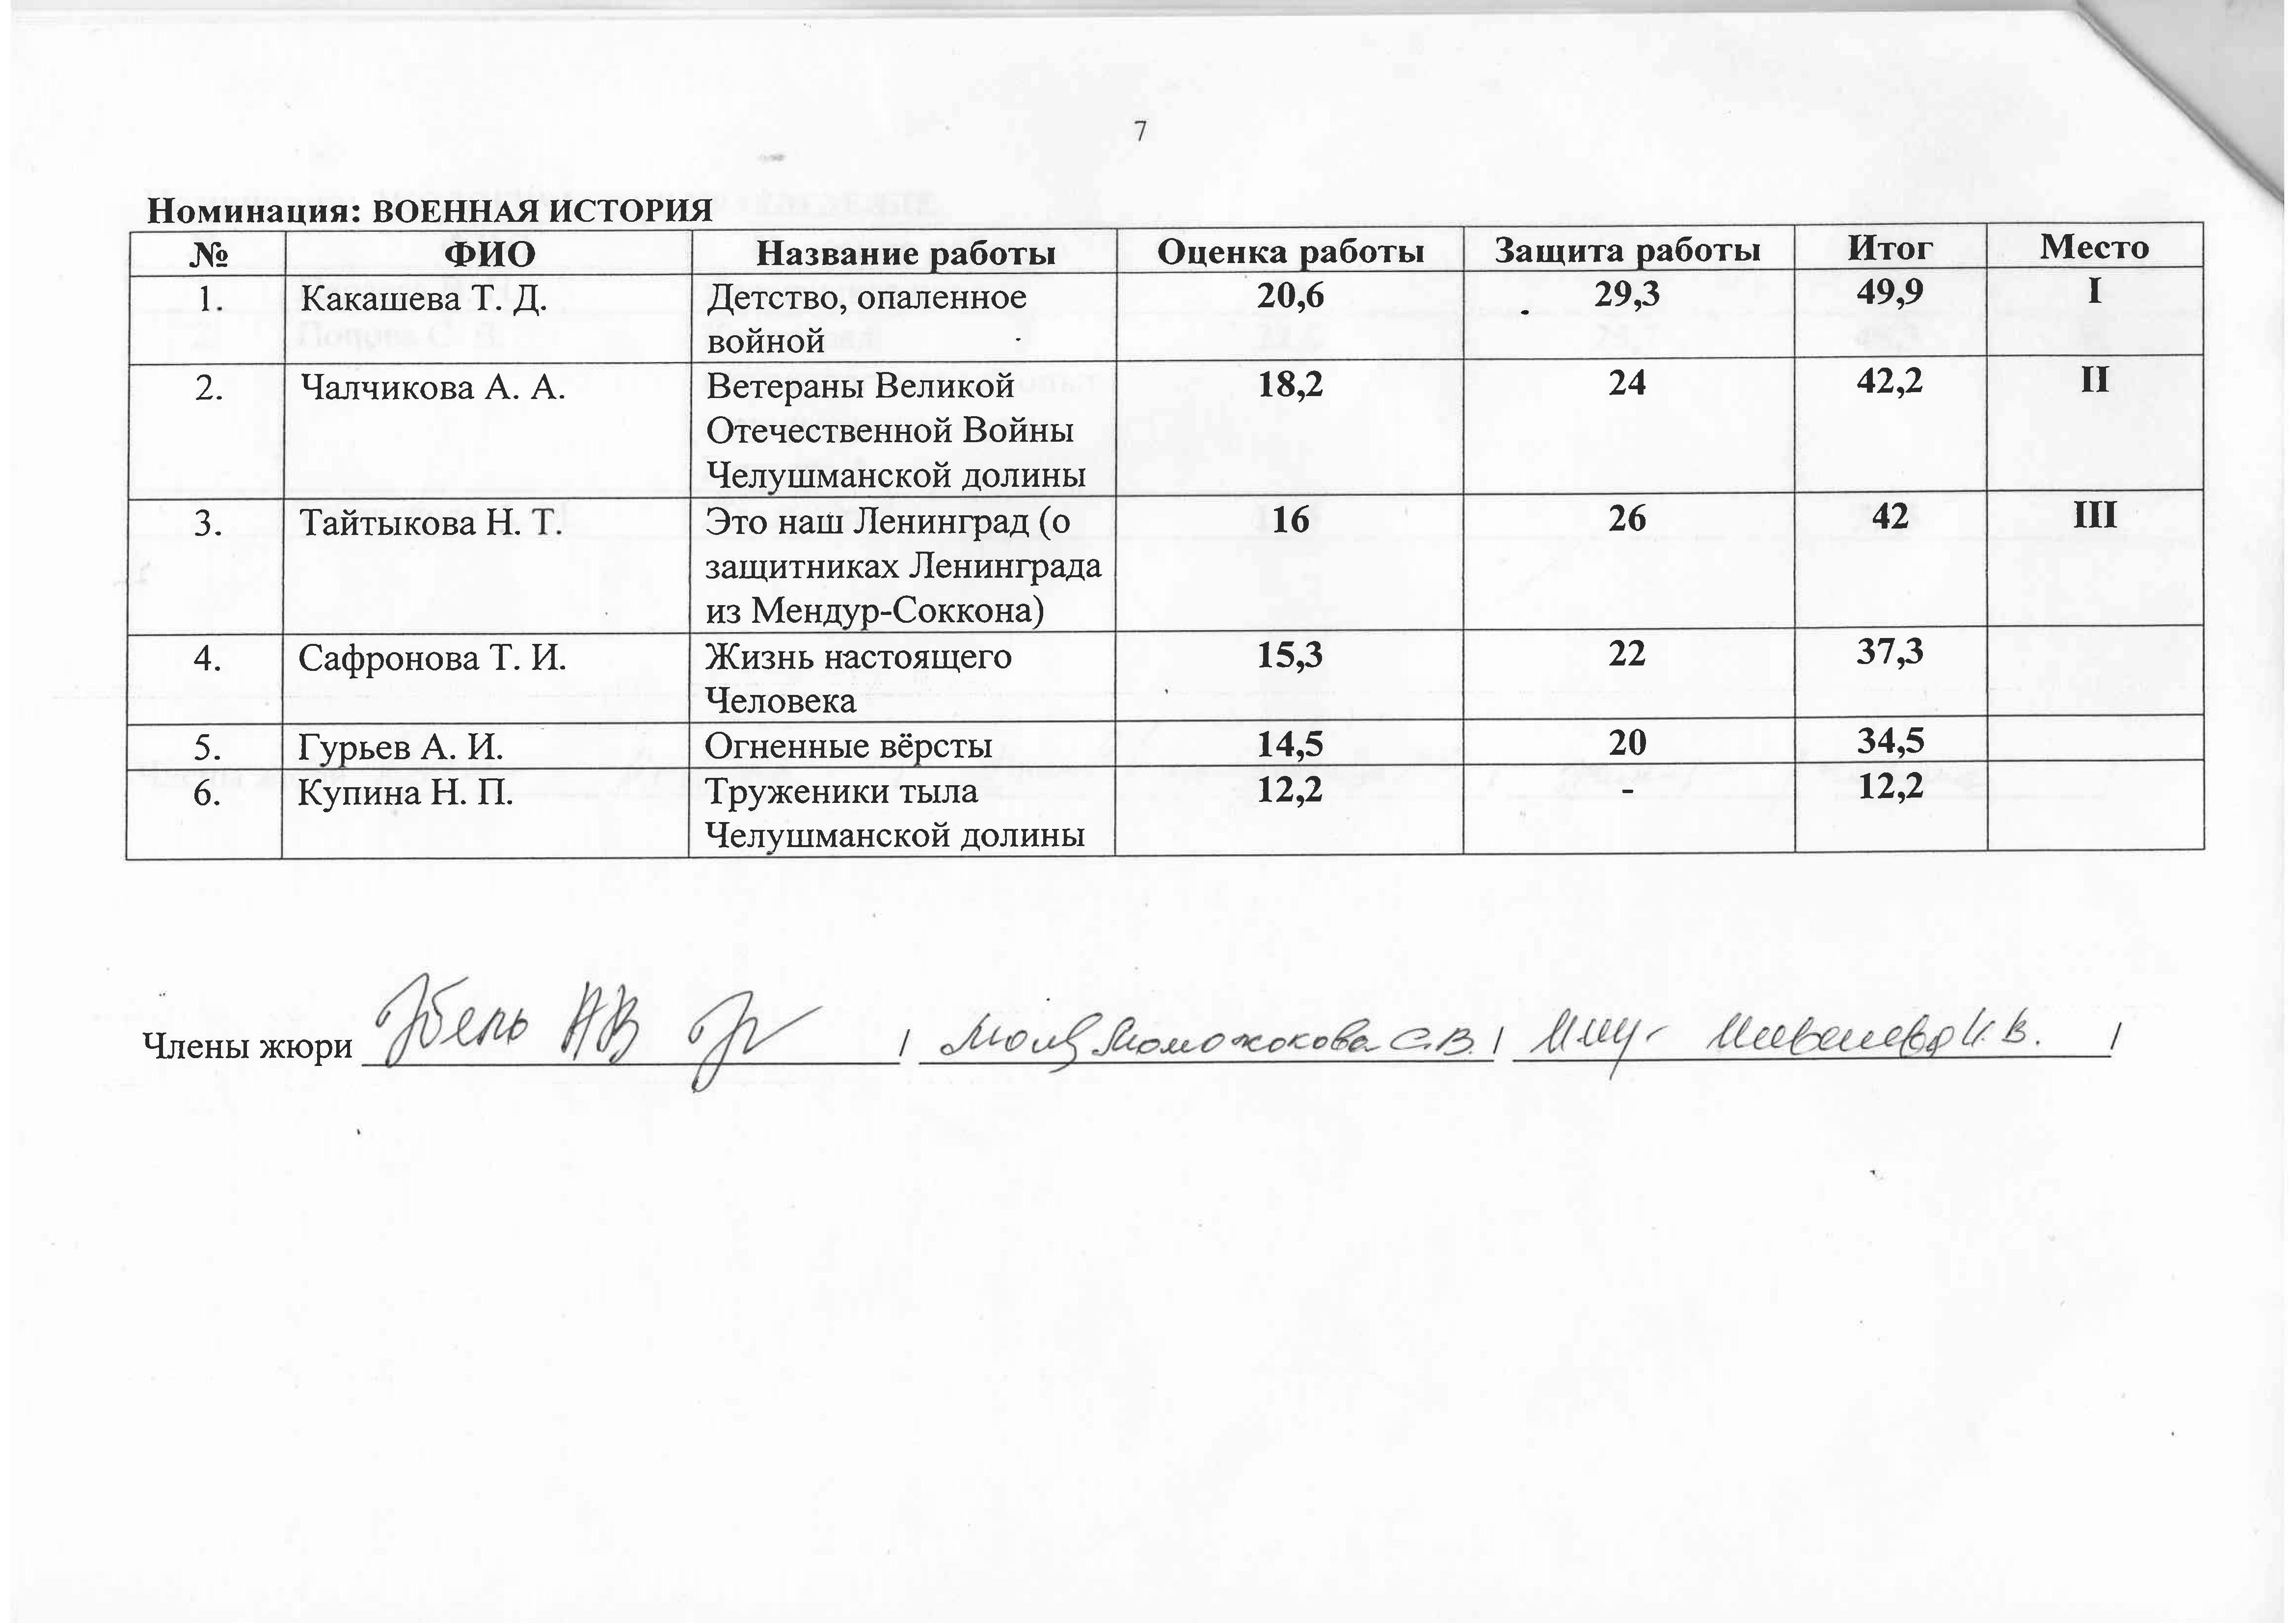 7
Номинация: ВОЕННАЯ ИСТОРИЯ
№ ФИО Название работы Оценка работы Защита работы Итог Место
1. Какашева Т. Д. Детство, опаленное 20,6 29,3 49,9 I
войной
2. Чалчикова А. А. Ветераны Великой 18,2 24 42,2 II
Отечественной Войны
Челушманской долины
3. Тайтыкова Н. Т. Это наш Ленинград (о 16 26 42 III
защитниках Ленинграда
из Мендур-Соккона)
4. Сафронова Т. И. Жизнь настоящего 15,3 22 37,3
Человека
5. Гурьев А. И. Огненные вёрсты 14,5 20 34,5
6. Купина Н. П. Труженики тыла 12,2 - 12,2
Челушманской долины
Члены жюри / С.В. / В. /